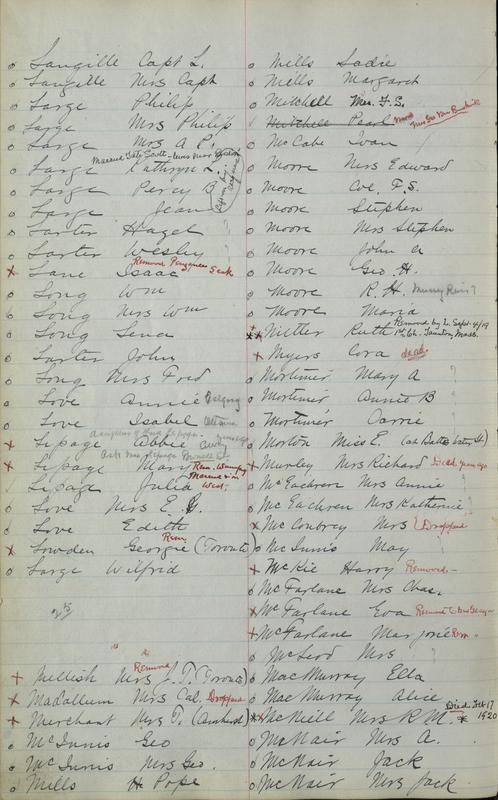 o Langille Capt L.
o Langille Mrs Capt
o Large Philip
o Large Mrs Philip
o Large Mrs A P.
o Large Kathryn L
o Large Percy B
o Large Jean
o Larter Hazel
o Larter Wesley
x Lane Isaac Removed
o Long Wm
o Long Mrs Wm
o Long Lena
o Larter John
o Long Mrs Fred
o Love Annie Calgary
o Love Isabel Ottawa
x Lepage Abbie
x Lepage Mary Rem. Winnipeg
Lepage Julia Married & in West.
o Love Mrs E.
o Love Edith
x Lowden Georgie (Toronto) Rem.
o Large Wilfrid
25
x Mellish Mrs J. T. (Toronto) Removed
x MacCallum Mrs Cal. Dropped
x Merchant Mrs T. (Amherst)
o McInnis Geo
o McInnis Mrs Geo.
o Mills H Pope
o Mills Sadie
o Mills Margaret
o Mitchell Mrs. F. S.
Mitchell Pearl
o McCabe Ivan
o Moore Mrs Edward
o Moore Col. F. S.
o Moore Stephen
o Moore Mrs Stephen
o Moore John A
o Moore Geo. H.
o Moore R. H. Murray River?
o Moore Maria
xx Ruth Removed by L. Sept. 4/19 Taunton, Mass.
x Myers Cora dead.
o Mortimer Mary A ?
o Mortimer Annie B ?
o Mortimer Carrie ?
o Morton Miss E.
x Murley Mrs Richard Died. years ago
o McEachren Mrs Annie ?
o McEachren Mrs Katherine ?
x Mrs Dropped
o McInnis May
x McKie Harry Removed
o McFarlane Mrs Chas.
x McFarlane Eva
x McFarlane Marjorie Rem.
o McLeod Mrs ?
o MacMurray Ella
o MacMurray Alice
xx McNeill Mrs R M. Died. Feb 17 1920
o McNair Mrs A.
o McNair Jack
o McNair Mrs Jack